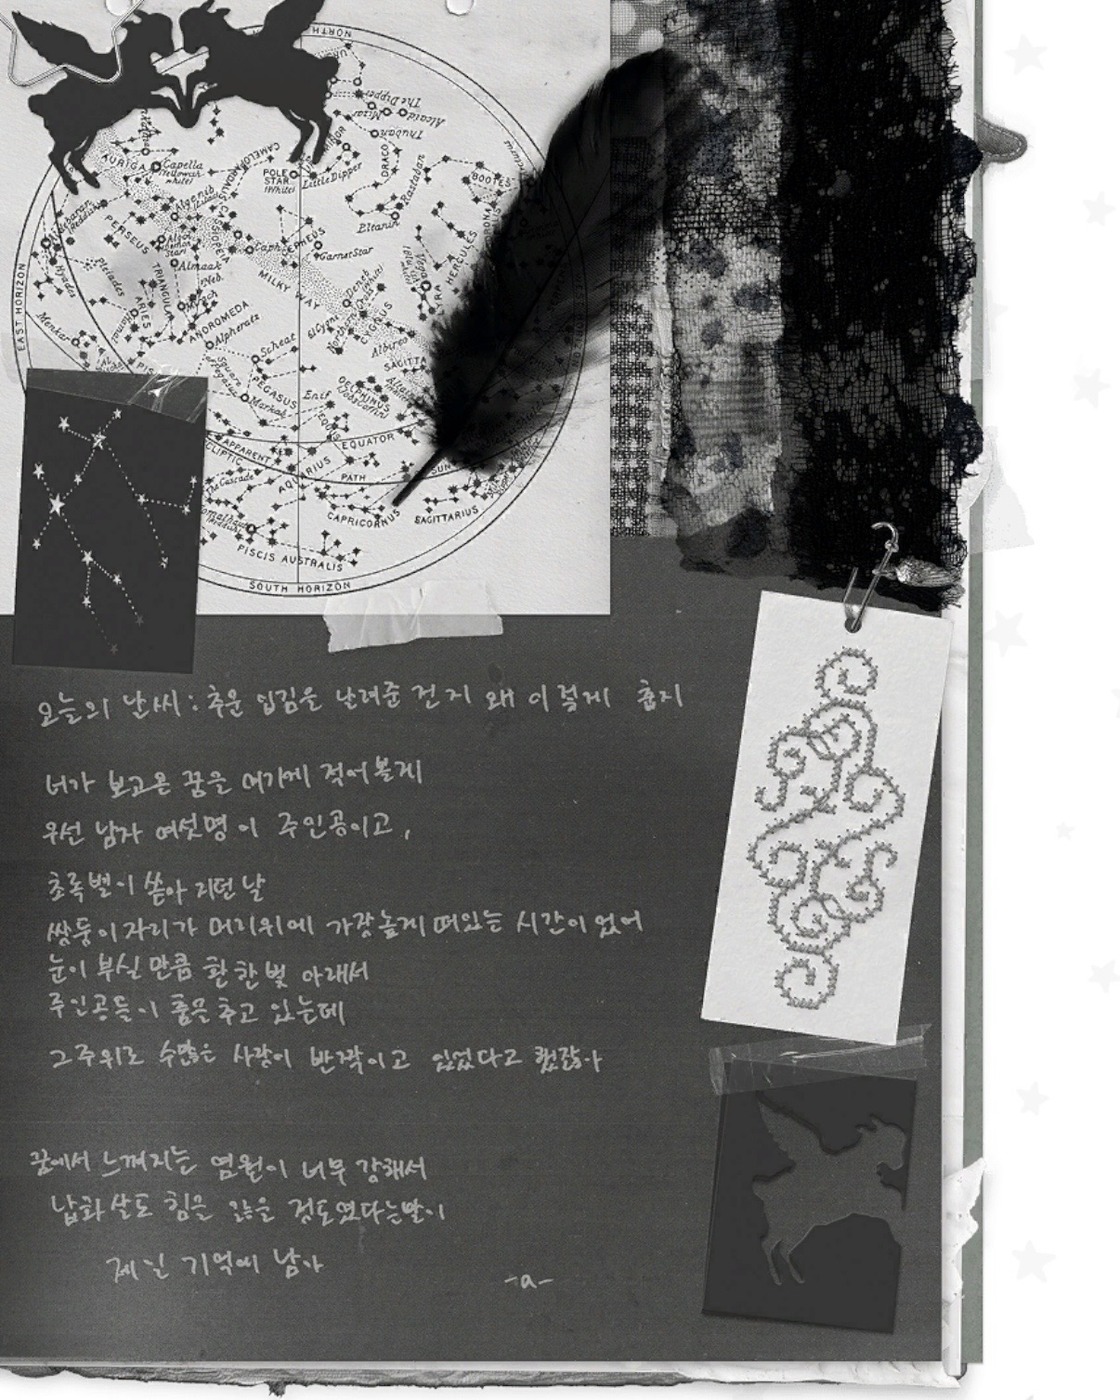 NORTH
The Dipper
Alcaid
Mizar
Thuban
DRACO
Rastaban
Eltanin
BOOTES
HERCULES
AURIGA
Capella
(Yellowish white)
POLE STAR
(White)
Little Dipper
PERSEUS
Algenib
CEPHEUS
Garnet Star
Almaak
Pleiades
Hyades
TRIANGULUM
MILKY WAY
Deneb
CYGNUS
ARIES
ANDROMEDA
Alpheratz
Menkar
Scheat
Albireo
PEGASUS
Markab
Enif
DELPHINUS
SAGITTA
EAST HORIZON
APPARENT
EQUATOR
ECLIPTIC
PATH
SUN
The Cascade
AQUARIUS
CAPRICORNUS
SAGITTARIUS
Fomalhaut
PISCIS AUSTRALIS
SOUTH HORIZON
오늘의 날씨 : 추운 입김을 날려준 건지 왜 이렇게 춥지
너가 보고온 꿈을 여기에 적어볼게
우선 남자 여섯명이 주인공이고,
초록별이 쏟아지던 날
쌍둥이자리가 머리위에 가장높게 떠있는 시간이었어
눈이 부실만큼 환한 빛 아래서
주인공들이 춤을 추고 있는데
그 주위로 수많은 사랑이 반짝이고 있었다고 했잖아
꿈에서 느껴지는 염원이 너무 강해서
납화살도 힘을 잃을 정도였다는말이
제일 기억에 남아
-a-